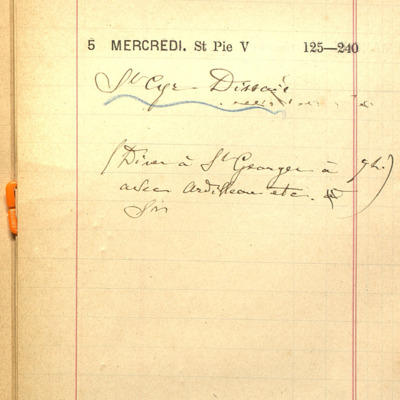 5 MERCREDI. St Pie V 125—240
St Cyr - Dissais
(Diner à St Georges à 9h.)
avec Ardilleau etc.